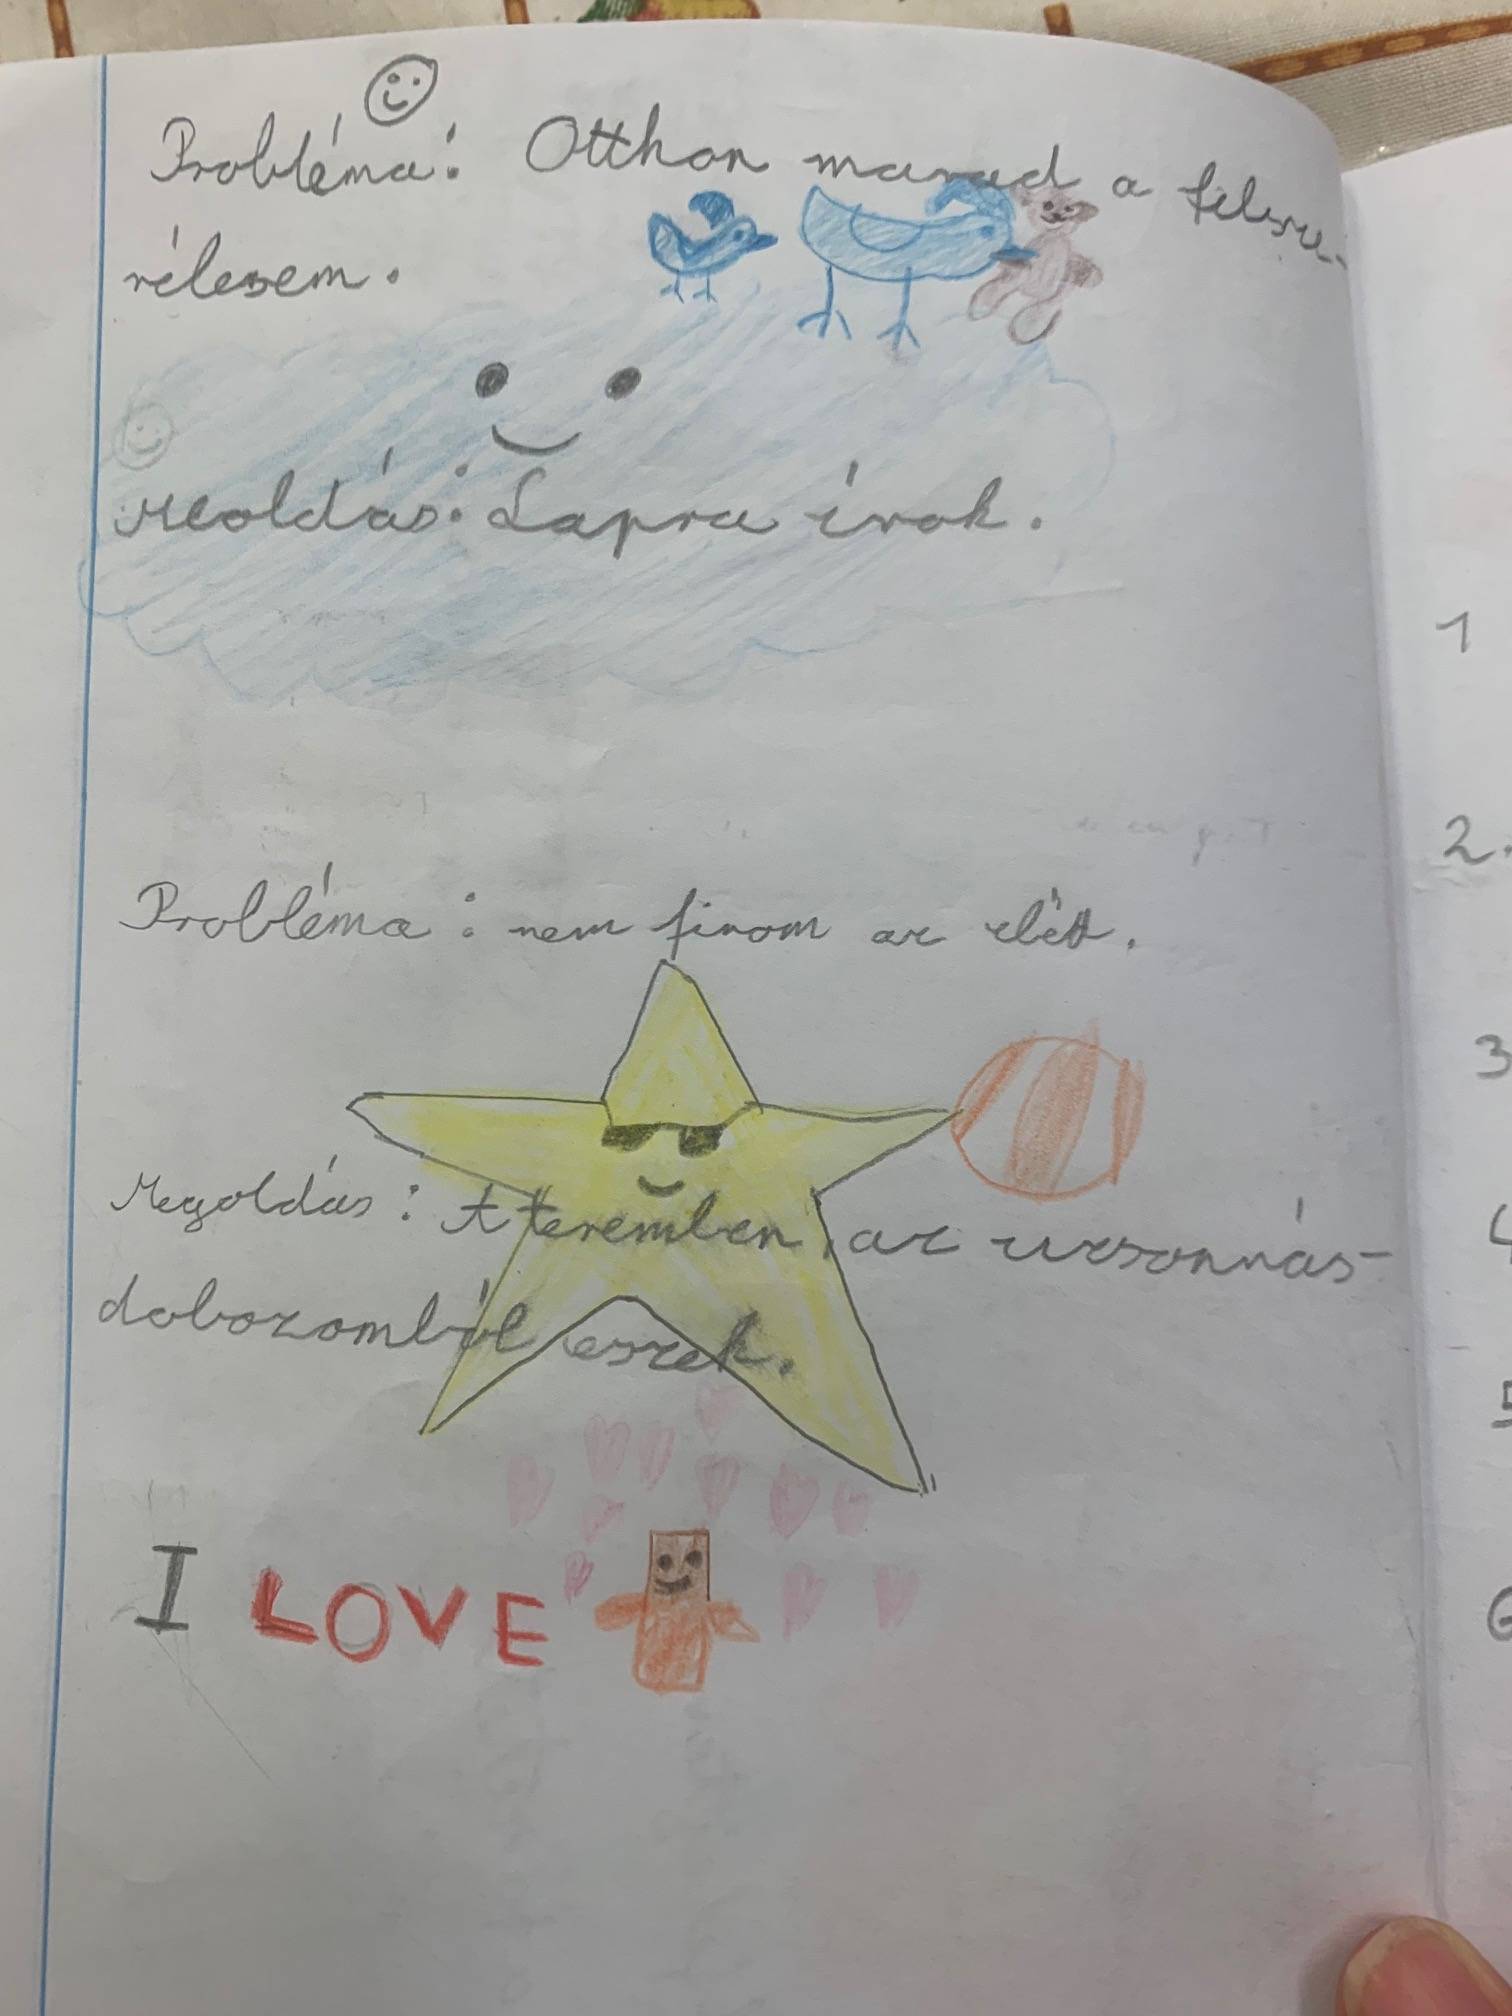 Probléma: Otthon marad a felsze-
rélesem.
Meoldás: Lapra írok.
Probléma: nem finom az ebéd.
Megoldás: A teremben, az uzsonnás-
dobozomból eszek.
I LOVE
1
2.
3
4
5
6